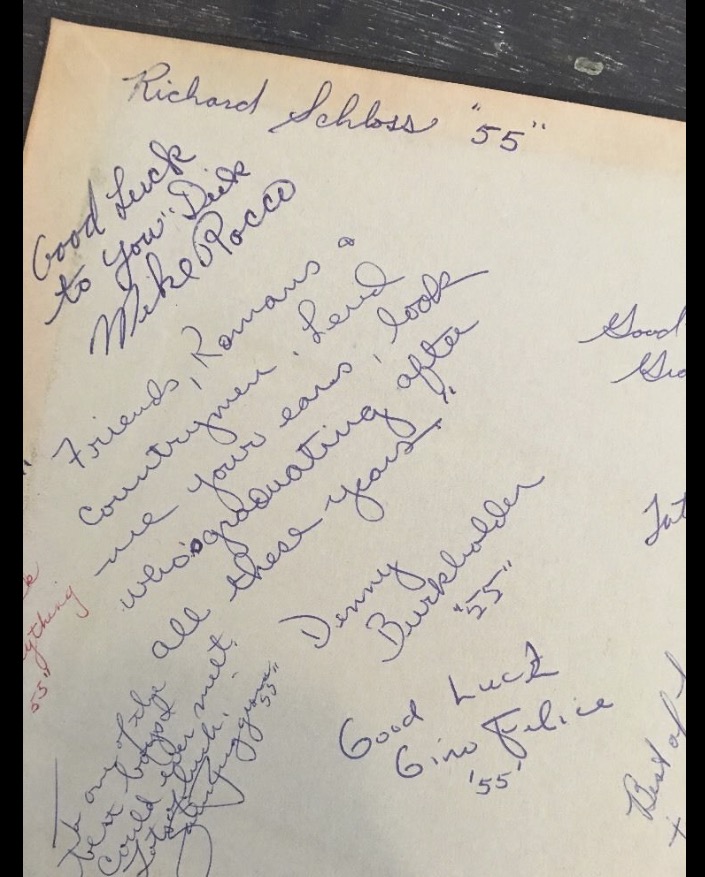 Richard Schloss "55"
Good Luck
to you "Dick
Mike Rocco
Friends, Romans &
Countrymen, Lend
me your ears, look
who's graduating after
all these years"
Denny
Burkholder
"55"
Good Luck
Gino Felice
'55'
To one of the
best boys I
could ever meet.
Lots of luck,
55"
Good
Best of
+
ything
55"